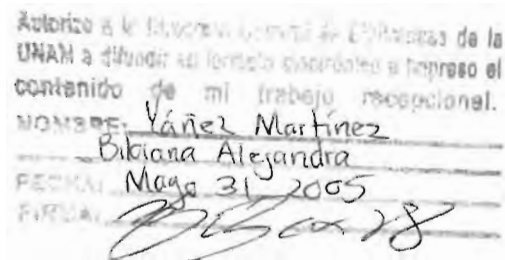 Autorizo a la Dirección General de Bibliotecas de la
UNAM a difundir en formato electrónico e impreso el
contenido de mi trabajo recepcional.
NOMBRE: Yáñez Martínez
Bibiana Alejandra
FECHA: Mayo 31 2005
FIRMA: